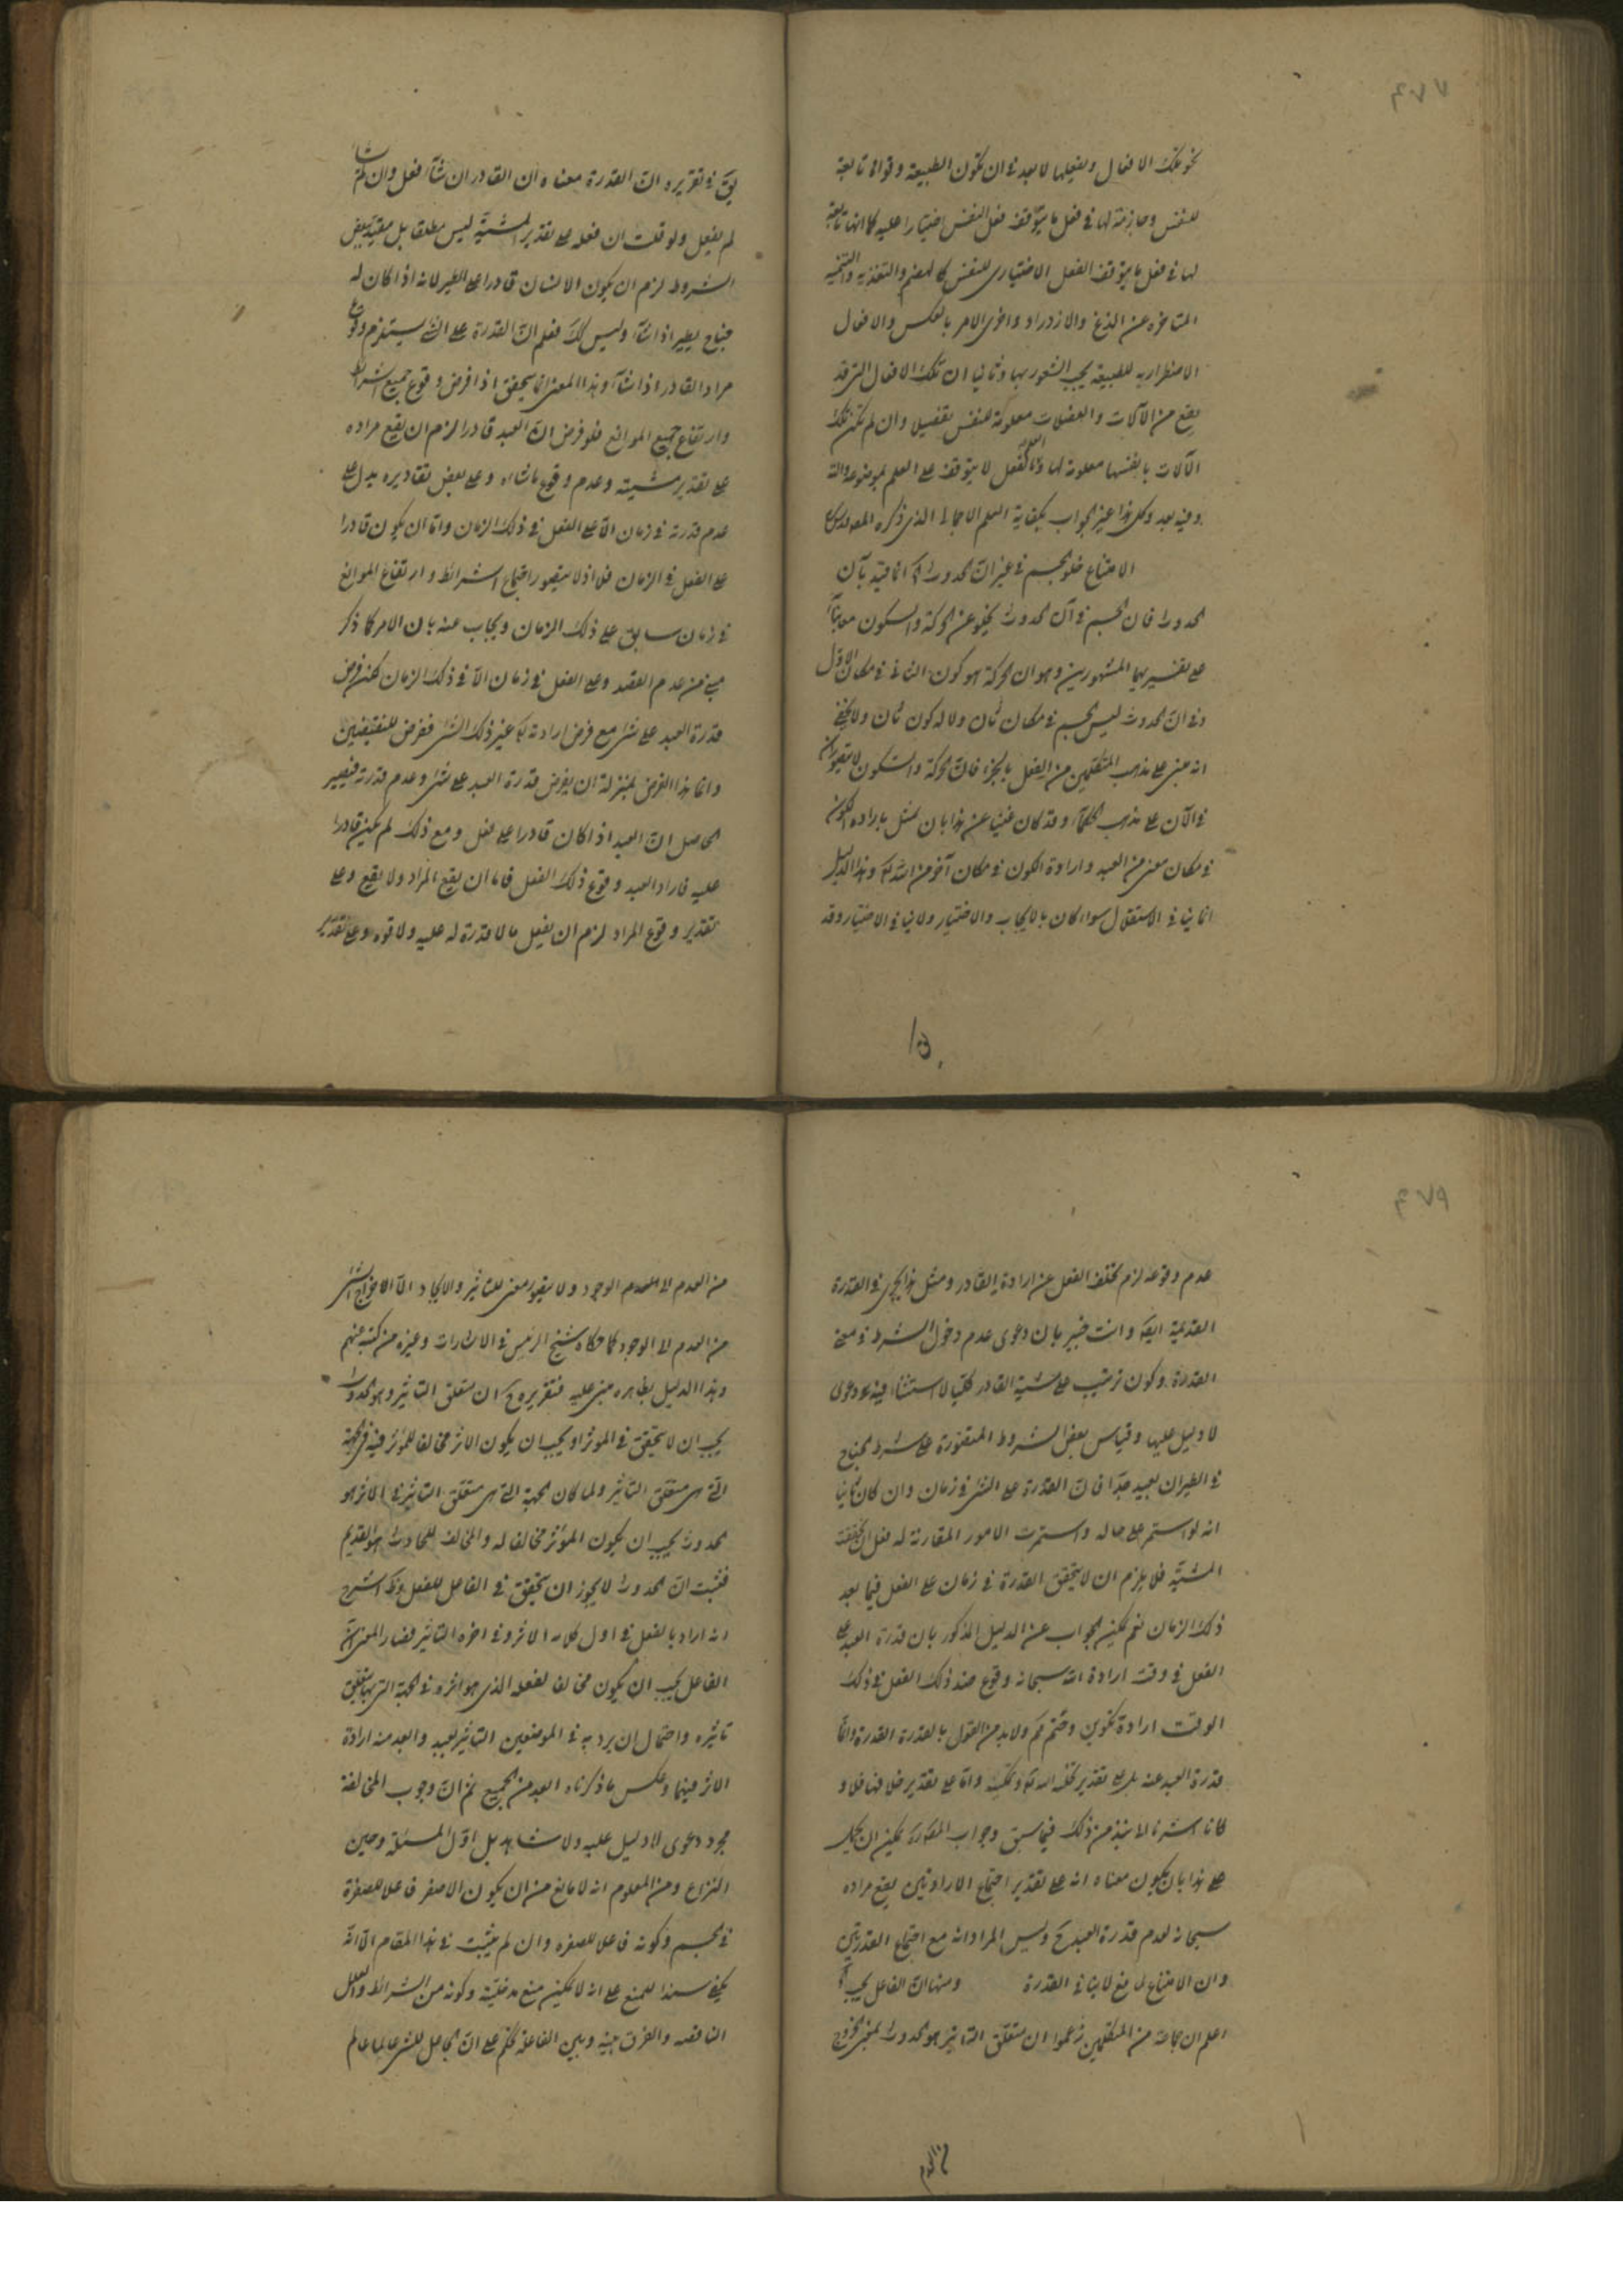 نحو تلك الافعال وبفعلها لا بعد في ان تكون الطبيعة وقواها تابعة
للنفس وخادمة لها في فعل ما يتوقف فعل النفس اختيارا عليه كما انها تابعة
لها في فعل ما يتوقف الفعل الاختيارى للنفس كالهضم والتغذيه والتنميه
المتاخره عن المضغ والازدراد واخرى الامر بالعكس والافعال
الاضطراريه للطبيعة يجب الشعور بها وثانيا ان تلك الافعال التي قد
يقع من الآلات والعضلات معلومة للنفس بتفصيل وان لم تكن تلك
الآلات بانفسها معلومة لها والعلم بالفعل لا يتوقف على العلم بموضوعه وآلته
وفيه بعد وكل هذا غير الجواب بكفاية العلم الاجمالى الذى ذكره المصه
الامتناع خلو الجسم في غير آن الحدوث انما قيد بآن
الحدوث فان الجسم في آن الحدوث يخلو عن الحركة والسكون معا بناء
على تفسيريهما المشهورين وهو ان الحركة هو كون الثانى في مكان الاول
وفي آن الحدوث ليس الجسم في مكان ثان ولا له كون ثان ولا يخفى
انه مبنى على مذهب المتكلمين من القول بالجزء فان الحركة والسكون لا يتصوران
في الآن على مذهب الحكماء وقد كان غنيا عن هذا بان يمثل بارادة الكون
في مكان معين من العبد وارادة الكون في مكان آخر من الله تعالى وهذا الدليل
انما ينافي الاستقلال سواء كان بالايجاب والاختيار ولا ينافي الاختيار وقد
يق في تقريره ان القدرة معناه ان القادر ان شاء فعل وان لم يشأ
لم يفعل ولو قلت ان فعله على تقدير المشية ليس مطلقا بل مقيد ببعض
الشروط لزم ان يكون الانسان قادرا على الطير لانه اذا كان له
جناح يطير اذا شاء وليس كك فعلم ان القدرة على الشئ يستلزم وقوع
مراد القادر اذا شاء وهذا المعنى انما يتحقق اذا فرض وقوع جميع الشرائط
وارتفاع جميع الموانع فلو فرض ان العبد قادرا لزم ان يقع مراده
على تقدير مشيته وعدم وقوع ما شاء وعلى بعض تقاديره يدل على
عدم قدرته في زمان الآ على الفعل في ذلك الزمان واما ان يكون قادرا
على الفعل في الزمان فلا اذ لا يتصور اجتماع الشرائط وارتفاع الموانع
في زمان سابق على ذلك الزمان ويجاب عنه بان الامر كما ذكر
من عدم القصد وعلى الفعل في زمان الآ في ذلك الزمان لكن فرض
قدرة العبد على شئ مع فرض ارادته تعالى غير ذلك الشئ فرض للنقيضين
وانما هذا الفرض بمنزلة ان يفرض قدرة العبد على شئ وعدم قدرته فيصير
الحاصل ان العبد اذا كان قادرا على فعل ومع ذلك لم يكن قادرا
عليه فاراد العبد وقوع ذلك الفعل فاما ان يقع المراد ولا يقع وعلى
تقدير وقوع المراد لزم ان يفعل ما لا قدرة له عليه ولا قوه وعلى تقدير
عدم وقوعه لزم تخلف الفعل عن ارادة القادر ومثل هذا يجرى في القدرة
القديمة ايضا وانت خبير بان دعوى عدم دخول الشرط في معنى
القدرة وكون ترتيب على مشية القادر كليا لا استثناء فيه دعوى
لا دليل عليها وقياس بعض الشروط المتصورة على شرط الجناح
في الطيران بعيد جدا فان القدرة على الشئ في زمان وان كان ثانيا
انه لو استمر على حاله واستمرت الامور المقارنة له فعل ان تحققت
المشية فلا يلزم ان لا يتحقق القدرة في زمان على الفعل فيما بعد
ذلك الزمان نعم يمكن الجواب عن الدليل المذكور بان قدرة العبد على
الفعل في وقت ارادة الله سبحانه وقوع ضد ذلك الفعل في ذلك
الوقت ارادة تكوين وحتم ولابد من القول بالقدرة القدرة وانما
قدرة العبد عنه على تقدير واما على تقدير خلافها فلا و
لما اشرنا الا نبذ من ذلك فيما سبق وجواب المصه يمكن ان يحمل
على هذا بان يكون معناه انه على تقدير اجتماع الارادتين يقع مراده
سبحانه لعدم قدرة العبد ح وليس المراد انه مع اجتماع القدرتين
وان الامتناع لمانع لا ينافي القدرة ومنها ان الفاعل يجب
اعلم ان جماعة من المتكلمين زعموا ان متعلق التاثير هو الحدوث بمعنى الخروج
من العدم الى الوجود ولا يتصور معنى للتاثير والايجاد الا الاخراج الشئ
من العدم الى الوجود كما حكاه شيخ الرئيس في الاشارات وغيره من كتبه عنهم
وهذا الدليل بظاهره مبنى عليه فتقريره ح ان متعلق التاثير وهو الحدوث
يجب ان لا يتحقق في الموثر او يجب ان يكون الاثر مخالفا للموثر فيه في الجهة
التي هى متعلق التاثير ولما كان الجهة التي هى متعلق التاثير في الاثر هو
الحدوث يجب ان يكون الموثر مخالفا له والمخالف للحادث هو القديم
فثبت ان الحدوث لا يجوز ان يتحقق في الفاعل للفعل وذكر الشرح
انه اراد بالفعل في اول كلامه الاثر وفي اخره التاثير فصار المعنى ان
الفاعل يجب ان يكون مخالفا لفعله الذى هو اثره في الجهة التي بها يتعلق
تاثيره واحتمال ان يرد به في الموضعين التاثير بعيد وابعد منه ارادة
الاثر فيهما وعكس ما ذكرناه ابعد من الجميع ثم ان وجوب المخالفة
مجرد دعوى لا دليل عليه ولا شاهد بل اول المسئلة وعين
النزاع ومن المعلوم انه لا مانع من ان يكون الاصفر فاعلا للصفرة
في الجسم وكونه فاعلا للصفره وان لم يثبت في هذا المقام الا انه
يكفي سندا للمنع على انه لا يمكن منع مدخليته وكونه من الشرائط والعلل
الناقصه والفرق بينه وبين الفاعلة تحكم على ان الجاعل للشئ عالما عالم